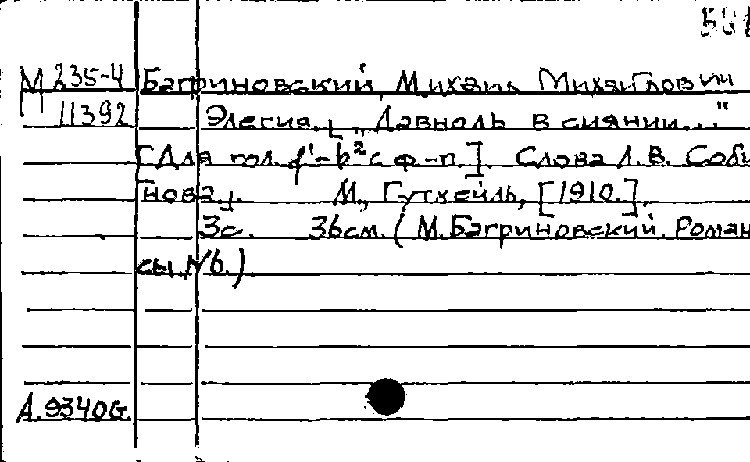 М 235-4 Багриновский, Михаил Михайлович
11392 Элегия. [„Давноль в сиянии..."
[Для гол. f¹-b² с ф-п.]. Слова Л.В. Соби
нова]. М., Гутхейль, [1910.].
3с. 36см. (М.Багриновский. Роман
сы. №6.)
А.9340G.